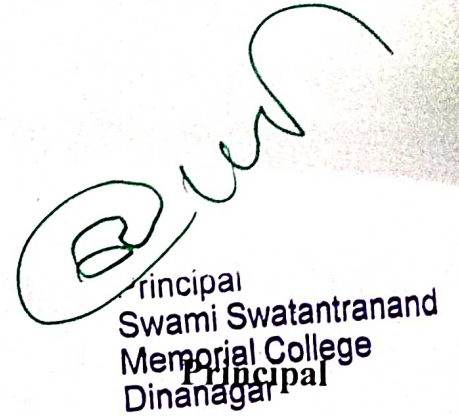 Principal
Swami Swatantranand
Memorial College
Dinanagar
Principal